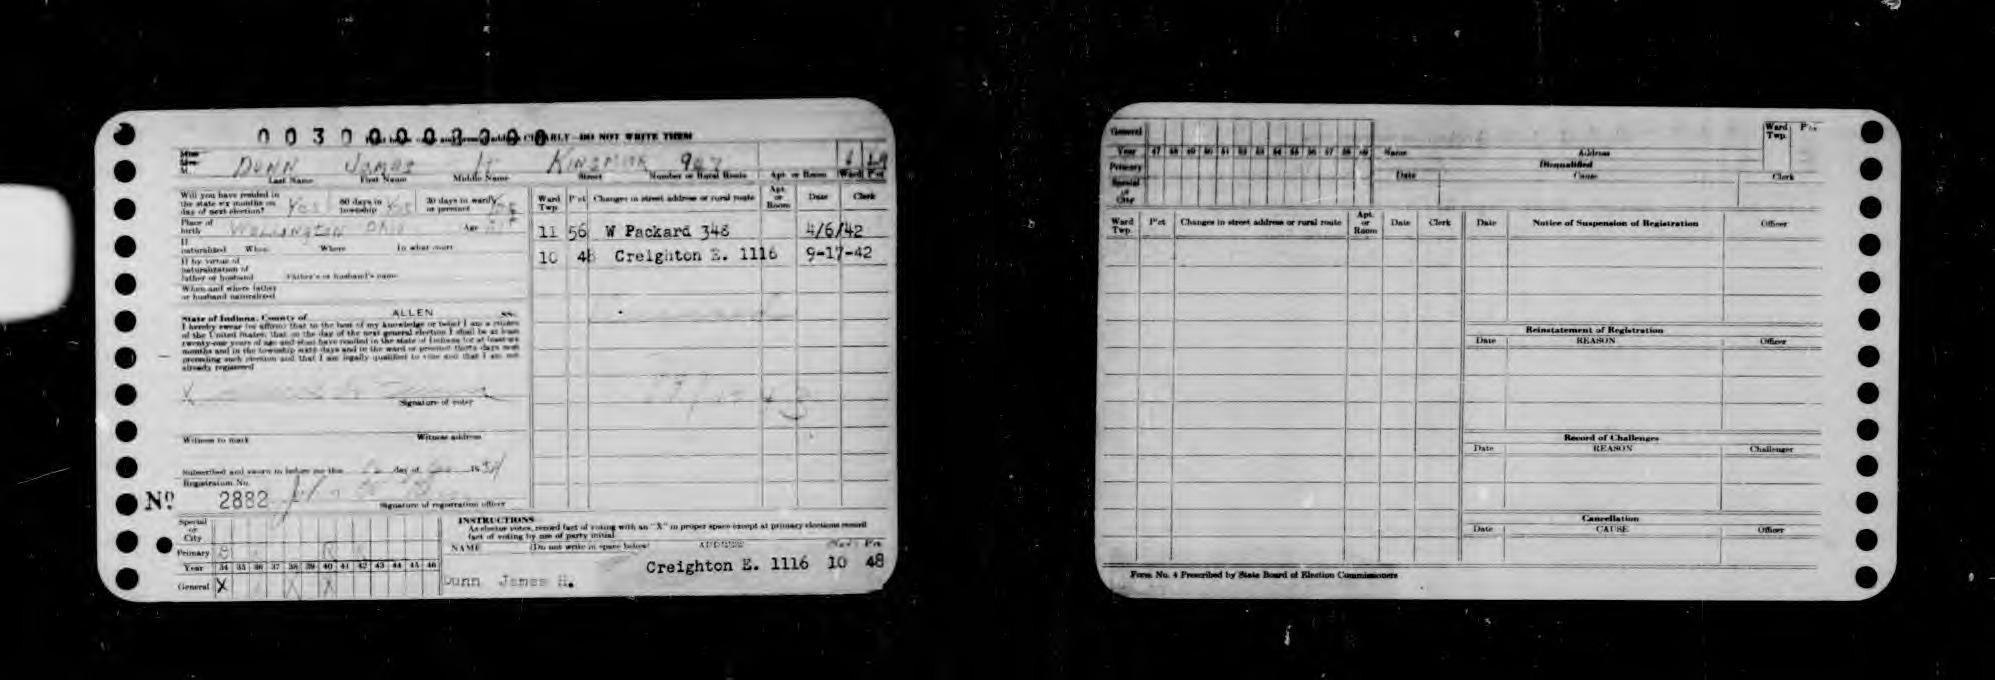 CLEARLY—DO NOT WRITE THEM
Miss
Mrs.
M. DUNN JAMES H 967
Last Name First Name Middle Name Street Number or Rural Route Apt. or Room Ward P'ct
Will you have resided in
the state six months on
day of next election? Yes 60 days in
township Yes 30 days in ward
or precinct Yes
Place of
birth WELLINGTON OHIO Age
If
naturalized When Where In what court
If by virtue of
naturalization of
father or husband Father's or husband's name
When and where father
or husband naturalized
State of Indiana, County of ALLEN ss.
I hereby swear (or affirm) that to the best of my knowledge or belief I am a citizen
of the United States; that on the day of the next general election I shall be at least
twenty-one years of age and shall have resided in the state of Indiana for at least six
months and in the township sixty days and in the ward or precinct thirty days next
preceding such election and that I am legally qualified to vote and that I am not
already registered
X
Signature of voter
Witness to mark Witness address
Subscribed and sworn to before me this day of 19
Registration No.
No. 2882
Signature of registration officer
Special
or
City
Primary
Year 34 35 36 37 38 39 40 41 42 43 44 45 46
General X X X
Ward
Twp. P'ct Changes in street address or rural route Apt.
or
Room Date Clerk
11 56 W Packard 348 4/6/42
10 48 Creighton E. 1116 9-17-42
INSTRUCTIONS
As elector votes, record fact of voting with an "X" in proper space except at primary elections record
fact of voting by use of party initial
NAME (Do not write in space below) ADDRESS Ward Pct
Creighton E. 1116 10 48
Dunn James H.
General
Year 47 48 49 50 51 52 53 54 55 56 57 58 59
Primary
Special
or
City
Name Address
Ward
Twp. P'ct
Disqualified
Date Cause Clerk
Ward
Twp. P'ct Changes in street address or rural route Apt.
or
Room Date Clerk
Date Notice of Suspension of Registration Officer
Reinstatement of Registration
Date REASON Officer
Record of Challenges
Date REASON Challenger
Cancellation
Date CAUSE Officer
Form No. 4 Prescribed by State Board of Election Commissioners